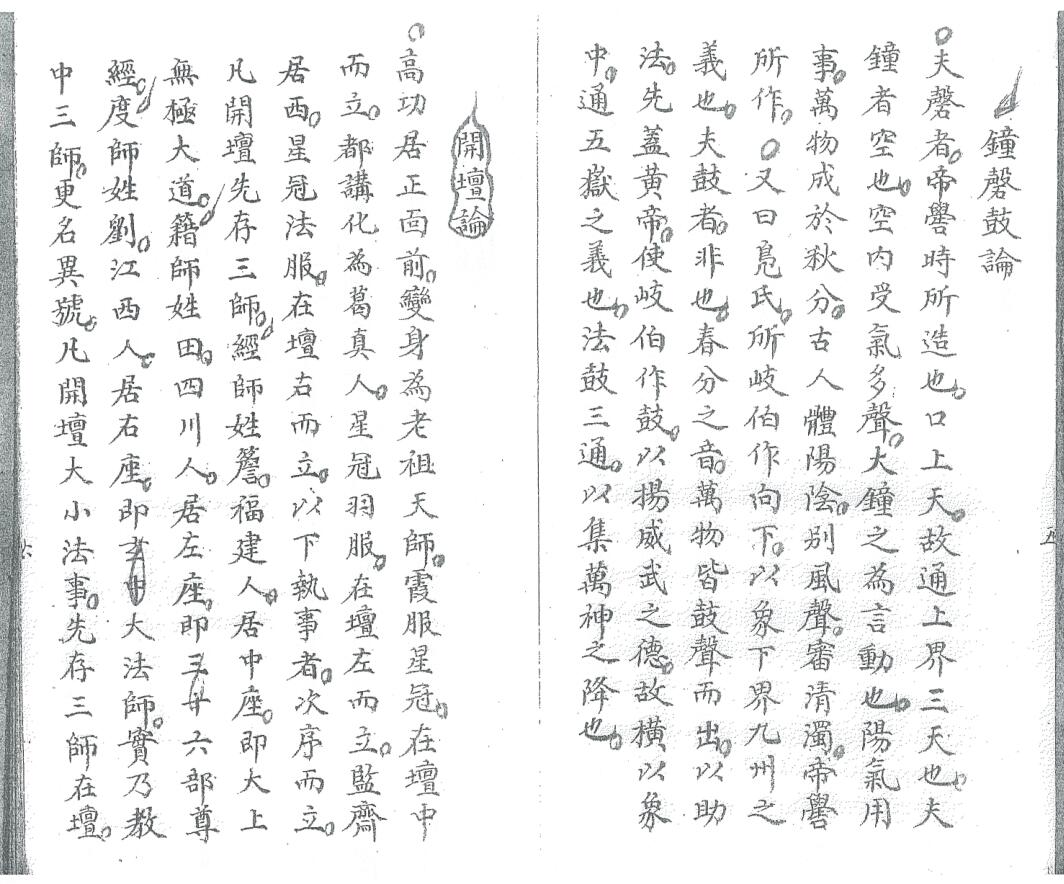 鐘磬鼓論
○夫磬者。帝嚳時所造也。口上天。故通上界三天也。夫
鐘者空也。空內受氣多聲。大鐘之為言動也。陽氣用
事。萬物成於秋分。古人體陽陰。別風聲。審清濁。帝嚳
所作。○又曰鳧氏。所岐伯作向下。以象下界九州之
義也。夫鼓者。非也。春分之音。萬物皆鼓聲而出。以助
法。先蓋黃帝。使岐伯作鼓。以揚威武之德。故橫以象
中。通五嶽之義也。法鼓三通。以集萬神之降也。
五
開壇論
○高功居正面前。變身為老祖天師。霞服星冠。在壇中
而立。都講化為葛真人。星冠羽服。在壇左而立。監齋
居西。星冠法服。在壇右而立。以下執事者。次序而立。
凡開壇先存三師。經師姓簷。福建人。居中座。即大上
無極大道。籍師姓田。四川人。居左座。即三十六部尊
經。度師姓劉。江西人。居右座。即玄中大法師。實乃教
中三師。更名異號。凡開壇大小法事。先存三師在壇。
六